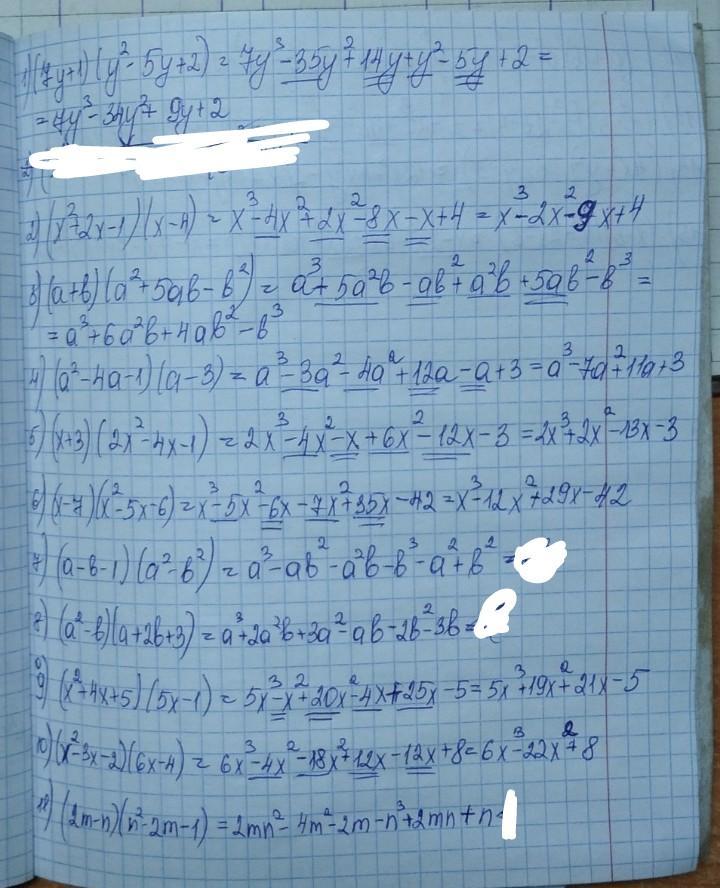 1) (7y+1)(y²-5y+2) = 7y³-35y²+14y+y²-5y+2=
=7y³-34y²+9y+2
2) (
2) (x²+2x-1)(x-4) = x³-4x²+2x²-8x-x+4 = x³-2x²-9x+4
3) (a+b)(a²+5ab-b²) = a³+5a²b-ab²+a²b+5ab²-b³=
=a³+6a²b+4ab²-b³
4) (a²-4a-1)(a-3) = a³-3a²-4a²+12a-a+3=a³-7a²+11a+3
5) (x+3)(2x²-4x-1) = 2x³-4x²-x+6x²-12x-3=2x³+2x²-13x-3
6) (x-7)(x²-5x-6)=x³-5x²-6x-7x²+35x-42=x³-12x²+29x-42
7) (a-b-1)(a²-b²) = a³-ab²-a²b-b³-a²+b²=
8) (a²-b)(a+2b+3)=a³+2a²b+3a²-ab-2b²-3b=
9) (x²+4x+5)(5x-1) = 5x³-x²+20x²-4x+25x-5=5x³+19x²+21x-5
10) (x²-3x-2)(6x-4) = 6x³-4x²-18x²+12x-12x+8=6x³-22x²+8
11) (2m-n)(n²-2m-1) = 2mn²-4m²-2m-n³+2mn+n